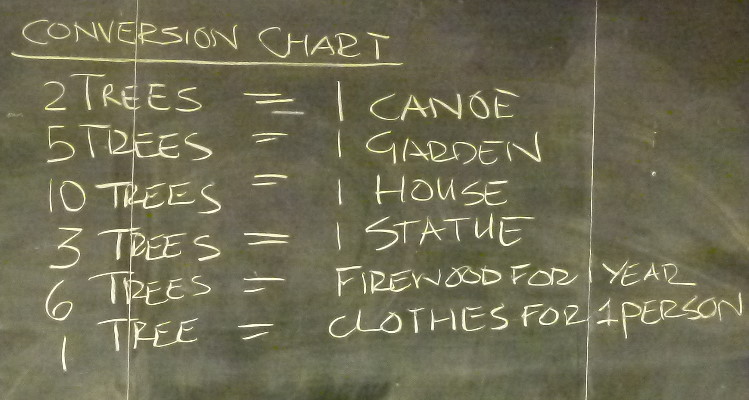 CONVERSION CHART
2 TREES = 1 CANOE
5 TREES = 1 GARDEN
10 TREES = 1 HOUSE
3 TREES = 1 STATUE
6 TREES = FIREWOOD FOR 1 YEAR
1 TREE = CLOTHES FOR 1 PERSON